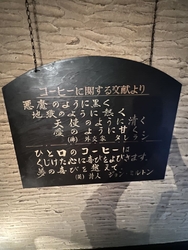 コーヒーに関する文献より
悪魔のように黒く
地獄のように熱く
天使のように清く
愛のように甘く
(佛) 外交家 タレラン
ひと口のコーヒーは
くじけた心に喜びをよびさます。
夢の喜びを越えて
(英) 詩人 ジョン・ミルトン